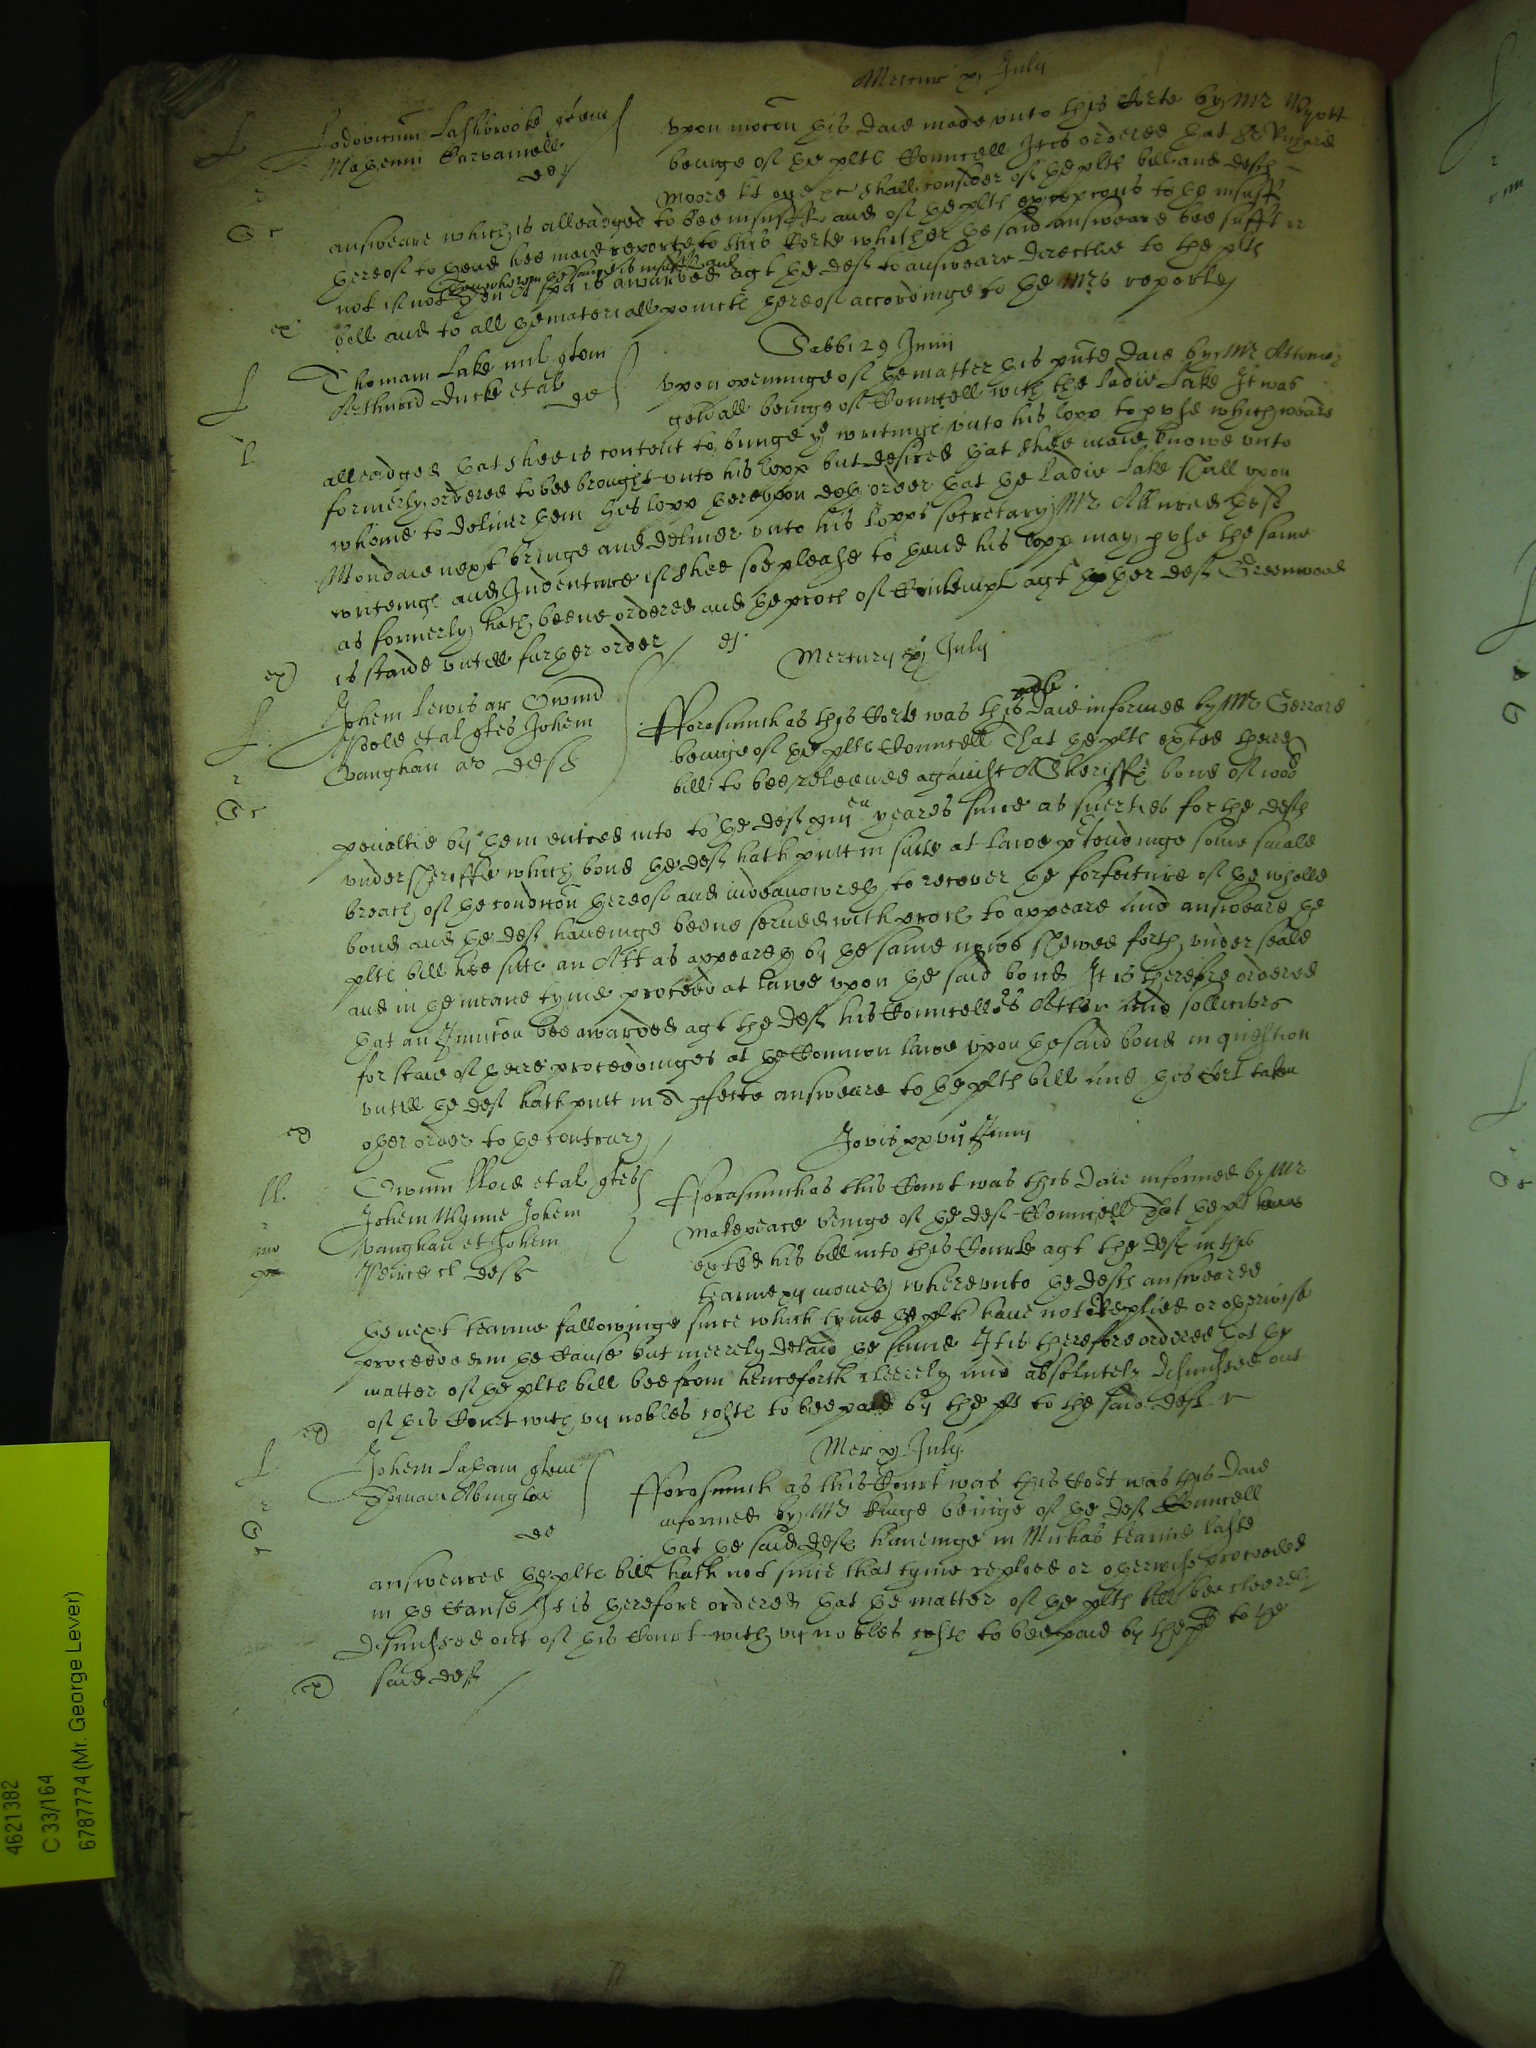 Mercur xj July
L Lodovicum Lashbrooke quer
Mathewm Carvanell
def
upon mocon this daie made unto this Corte by Mr Wyott
beinge of the plts Councell It is ordered that Sr Richard
Moore kt one etc shall consider of the plts bill and defts
answeare which is alleadged to bee insufft and of the plts excepcons to the insuff
thereof to thend hee maie reporte to this Corte whither the said answeare bee suffi or
not if not then a spa is awarded agt the deft to answeare directlie to the plts
bill and to all the materiall pointes thereof accordinge to the Mrs reporte
ex
Sabbi 29 Junii
L Thomam Lake mil quer
Arthurū Ducke et al
de
upon openinge of the matter this pnte daie by Mr Attorney
genall beinge of Councell with the Ladie Lake It was
alleadged that shee is content to bringe ye writinge unto his Lopp to pvse which weare
formerly ordered to bee brought unto his Lopp but desired that shee maie knowe unto
whome to deliver them his Lopp thereupon doth order that the Ladie Lake shall upon
Mondaie next bringe and deliver unto his Lopps secretary Mr Allured these
writeings and Indenture if shee soe please to thend his Lopp may pvse the same
as formerly hath beene ordered and the proces of Contempt agt the other deft Greenwood
is staide untill further order
ex
Mercury xj July
L Johem Lewis ar Owinū
Poole et al quer Johem
Vaughan ar deft
Forasmuch as this Corte was this daie informed by Mr Gerrard
beinge of the plts Councell That the plts exted theire
bill to bee releeved against A Sheriffs bond of
penaltie by them entred into to the deft yeares since as suerties for the defts
undersheriffe which bond the deft hath putt in suite at lawe ptendinge some smale
breach of the condicon thereof and indeavowreth to recover the forfeiture of the wholle
bond and the deft haveinge beene served with proces to appeare and answeare the
plts bill hee sitts an Att as appeareth by the same nowe shewed forth under seale
and in the meane tyme proceed at lawe upon the said bond It is therefore ordered
that an Iniuccon bee awarded agt the deft his Councellors Attor and sollicitors
for staie of theire proceedinges at the Common lawe upon the said bond in question
untill the deft hath putt in a pfecte answeare to the plts bill and this Cort taken
other order to the contrary
ex
Jovis xxvij Junij
ll Owinū lloid et al quer
Johem Wynne Johem
Vaughan et Johem
Peirce cl defts
Forasmuch as this Court was this daie informed by Mr
Makepeace beinge of the deft Councell That the plt
exted his bill into this Courte agt the deft in this
tearme xij moneth whereunto the defts answeared
the next tearme followinge since which tyme the plts have not Replied or otherwise
proceeded in the Cause but meerely delaid the same It is therefore ordered that the
matter of the plts bill bee from henceforth cleerely and absolutely dismissed out
of this Court with vij nobles costs to bee paid by the plt to the said deft
ex
Mer xj July
L Johem Latham quer
Thomam Abington
de
Forasmuch as this Court was this Cort was this daie
informed by Mr Kinge beinge of the deft Councell
that the said deft haveinge in Michas tearme laste
answeared the plts bill hath not since that tyme replied or otherwise proceeded
in the Cause It is therefore ordered that the matter of the plts bill bee cleerely
dismissed out of this Court with vij nobles costs to bee paid by the plt to the
said deft
ex
4621382
C 33/164
6787774 (Mr. George Lever)